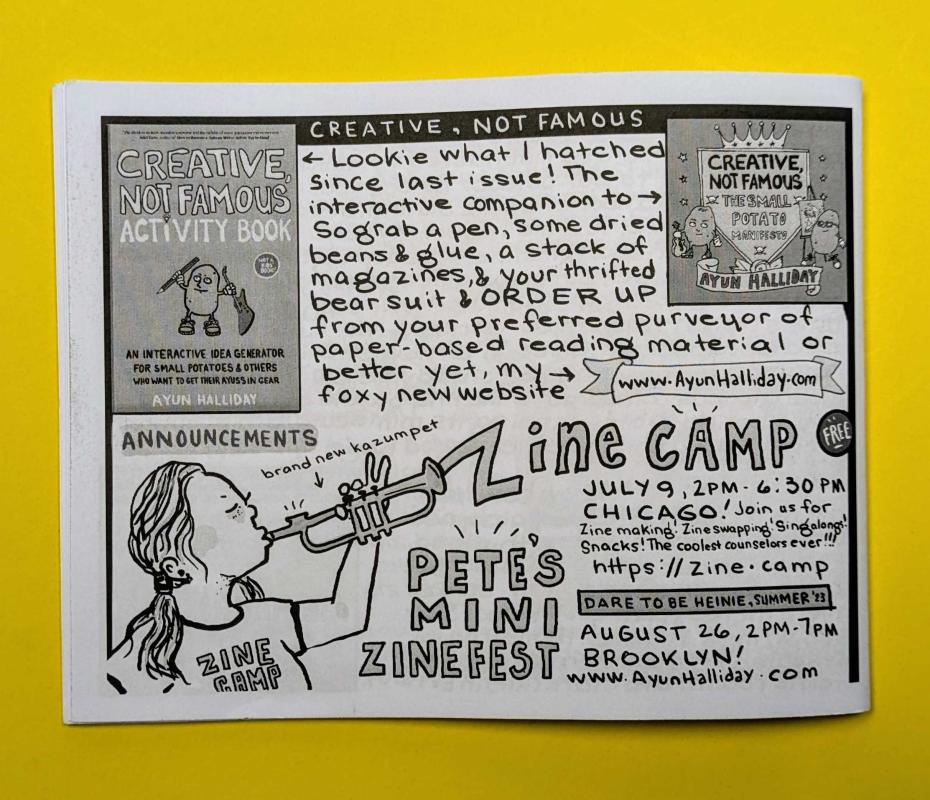 CREATIVE, NOT FAMOUS
CREATIVE,
NOT FAMOUS
ACTIVITY BOOK
NOT A
KIDS
BOOK!
AN INTERACTIVE IDEA GENERATOR
FOR SMALL POTATOES & OTHERS
WHO WANT TO GET THEIR AYUSS IN GEAR
AYUN HALLIDAY
← Lookie what I hatched
since last issue! The
interactive companion to →
So grab a pen, some dried
beans & glue, a stack of
magazines, & your thrifted
bear suit & ORDER UP
from your preferred purveyor of
paper-based reading material or
better yet, my →
foxy new website
www.AyunHalliday.com
CREATIVE,
NOT FAMOUS
THE SMALL
POTATO
MANIFESTO
AYUN HALLIDAY
ANNOUNCEMENTS
brand new kazumpet
ZINE
CAMP
Zine CAMP
FREE
JULY 9, 2PM - 6:30 PM
CHICAGO! Join us for
Zine making! Zine swapping! Singalongs!
Snacks! The coolest counselors ever!!!
https://zine.camp
PETE'S
MINI
ZINEFEST
DARE TO BE HEINIE, SUMMER '23
AUGUST 26, 2PM-7PM
BROOKLYN!
www.AyunHalliday.com